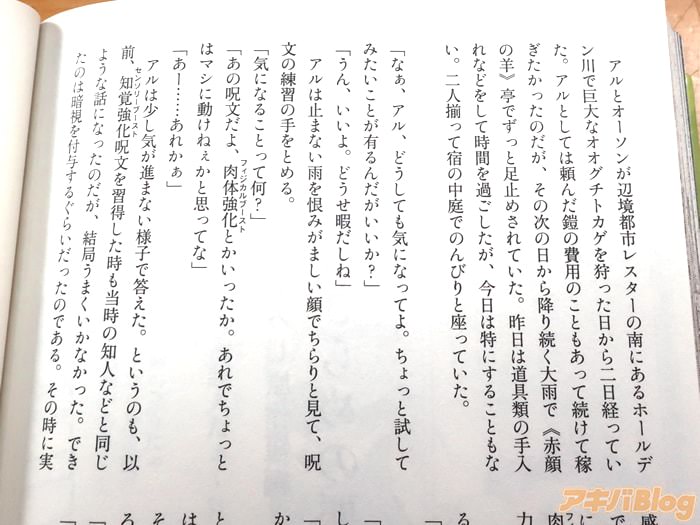 アルとオーソンが辺境都市レスターの南にあるホールデ
ン川で巨大なオオグチトカゲを狩った日から二日経ってい
た。アルとしては頼んだ鎧の費用のこともあって続けて稼
ぎたかったのだが、その次の日から降り続く大雨で《赤顔
の羊》亭でずっと足止めされていた。昨日は道具類の手入
れなどをして時間を過ごしたが、今日は特にすることもな
い。二人揃って宿の中庭でのんびりと座っていた。
「なぁ、アル、どうしても気になってよ。ちょっと試して
みたいことが有るんだがいいか?」
「うん、いいよ。どうせ暇だしね」
アルは止まない雨を恨みがましい顔でちらりと見て、呪
文の練習の手をとめる。
「気になることって何?」
「あの呪文だよ、肉体強化とかいったか。あれでちょっと
フィジカルブースト
はマシに動けねぇかと思ってな」
「あー……あれかぁ」
アルは少し気が進まない様子で答えた。というのも、以
前、知覚強化呪文を習得した時も当時の知人などと同じ
センソリーブースト
ような話になったのだが、結局うまくいかなかった。でき
たのは暗視を付与するぐらいだったのである。その時に実
アキバBlog